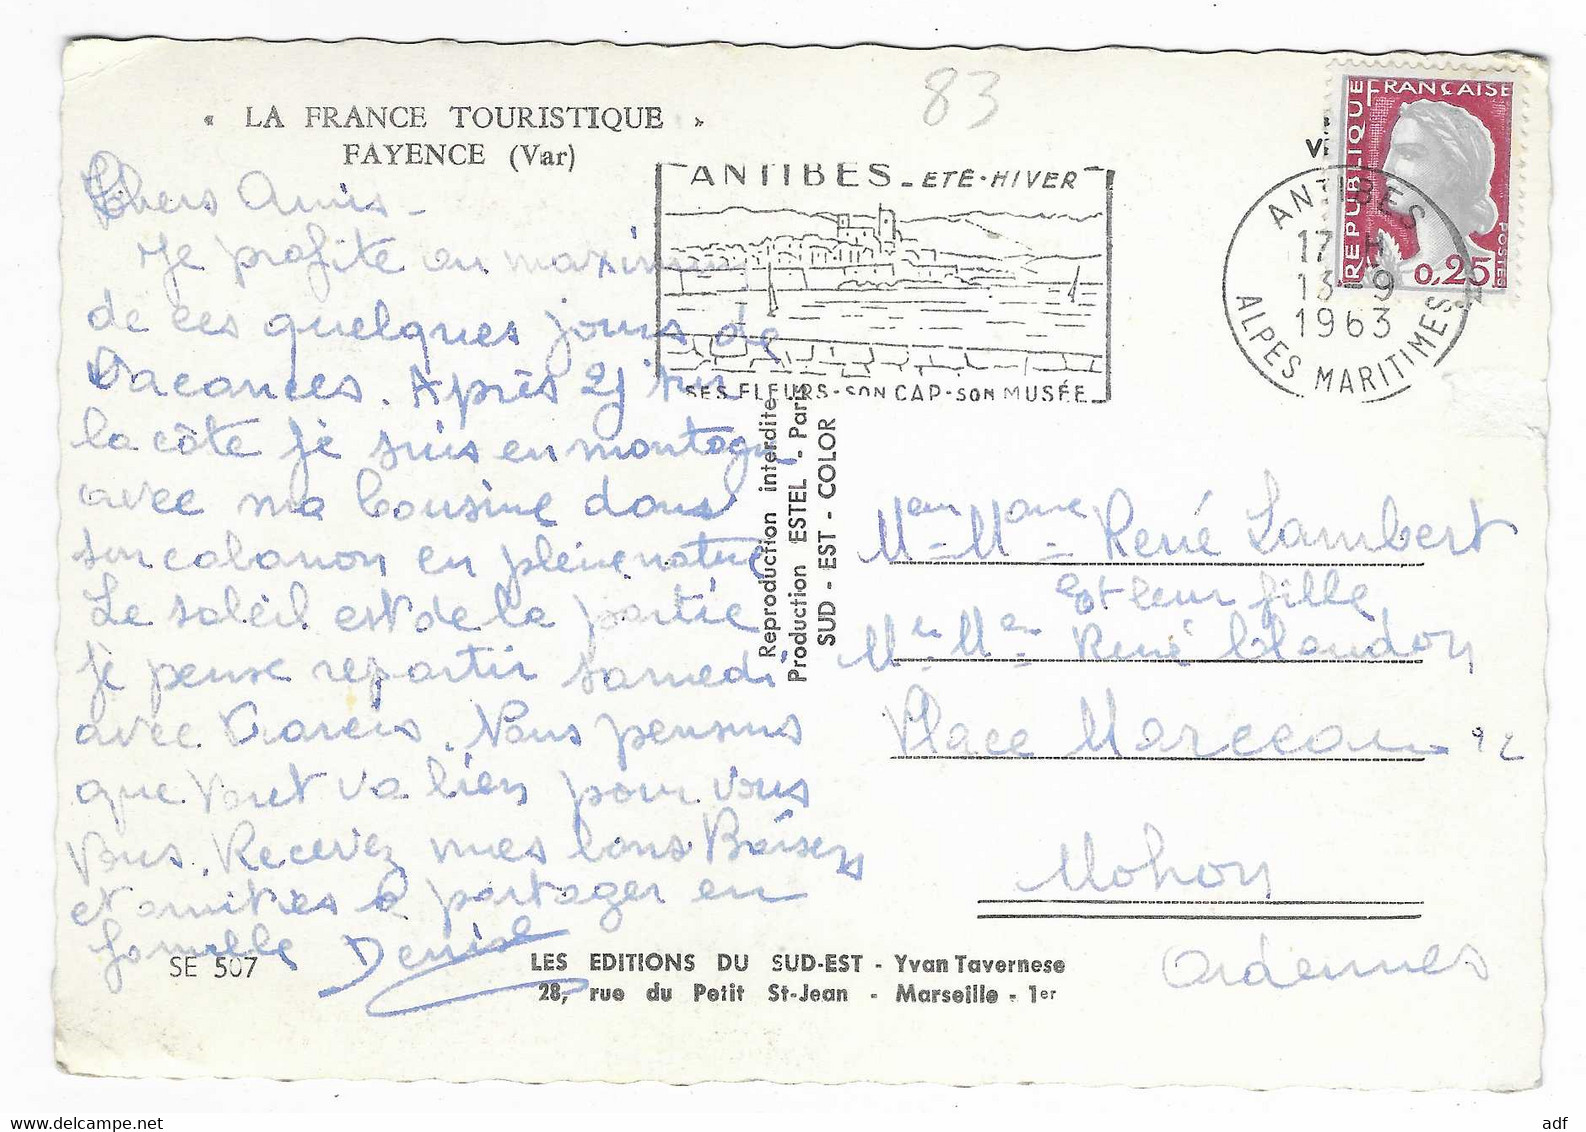 83
« LA FRANCE TOURISTIQUE »
FAYENCE (Var)
ANTIBES - ETE - HIVER
SES FLEURS - SON CAP - SON MUSÉE
RÉPUBLIQUE FRANÇAISE
POSTES
0,25
ANTIBES
17 H
13 - 9
1963
ALPES MARITIMES
Chers Amis -
Je profite au maximum
de ces quelques jours de
Vacances. Après 2j sur
la côte je suis en montagne
avec ma Cousine dans
son cabanon en pleine nature
Le soleil est de la partie
Je pense repartir samedi
avec . Nous pensons
que tout va bien pour vous
tous. Recevez mes bons Baisers
et amitiés à partager en
famille Denise
Reproduction interdite
Production ESTEL - Paris
SUD - EST - COLOR
Meur Mame René Lambert
et leur fille
Mr Me René Claudon
Place Marceau 92
Mohon
Ardennes
SE 507
LES EDITIONS DU SUD-EST - Yvan Tavernese
28, rue du Petit St-Jean - Marseille - 1er
adf